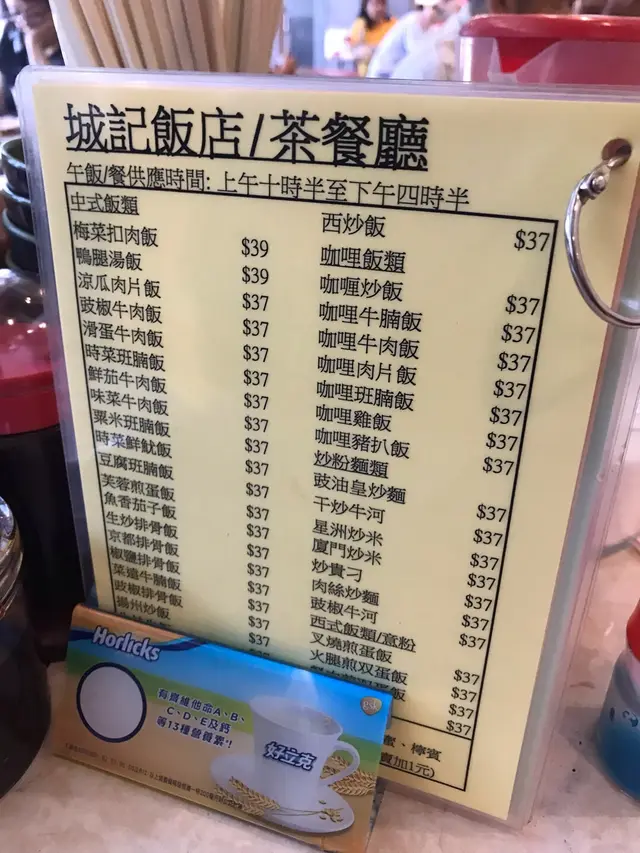 城記飯店/茶餐廳
午飯/餐供應時間: 上午十時半至下午四時半
中式飯類
梅菜扣肉飯 $39
鴨腿湯飯 $39
涼瓜肉片飯 $37
豉椒牛肉飯 $37
滑蛋牛肉飯 $37
時菜班腩飯 $37
鮮茄牛肉飯 $37
味菜牛肉飯 $37
粟米班腩飯 $37
時菜鮮魷飯 $37
豆腐班腩飯 $37
芙蓉煎蛋飯 $37
魚香茄子飯 $37
生炒排骨飯 $37
京都排骨飯 $37
椒鹽排骨飯 $37
菜遠牛腩飯 $37
豉椒排骨飯 $37
揚州炒飯 $37
西炒飯 $37
咖哩飯類
咖喱炒飯 $37
咖哩牛腩飯 $37
咖哩牛肉飯 $37
咖哩肉片飯 $37
咖哩班腩飯 $37
咖哩雞飯 $37
咖哩豬扒飯 $37
炒粉麵類
豉油皇炒麵 $37
干炒牛河 $37
星洲炒米 $37
廈門炒米 $37
炒貴刁 $37
肉絲炒麵 $37
豉椒牛河 $37
西式飯類/意粉
叉燒煎蛋飯 $37
火腿煎双蛋飯 $37
飯 $37
、檸賓
加1元)
Horlicks
有齊維他命A、B、
C、D、E及鈣
等13種營養素
好立克